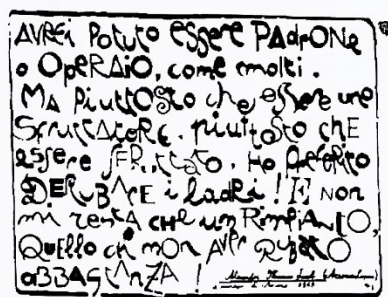 AVREI POTUTO ESSERE PADRONE
O OPERAIO, come molti.
MA PiuttOSto che essere uno
SfruttAtore, piuttosto chE
essere sfruttato, Ho preferito
DERUBARE i ladri! E NON
mi restA CHE un RimpiAntO,
Quello di non AVER RubatO
ABBAStAnZA!